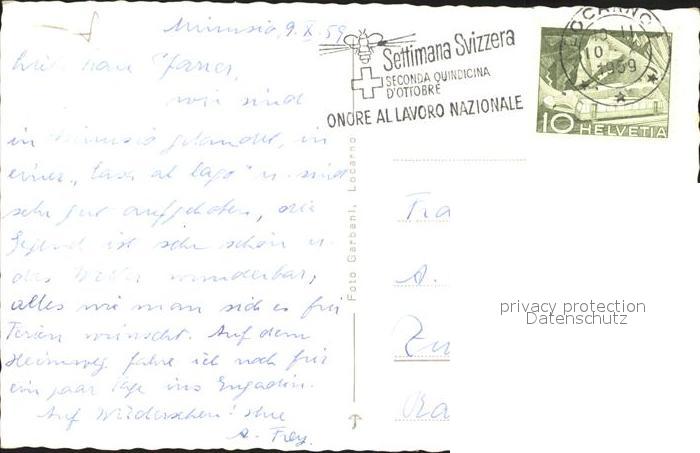 Minusio, 9. X. 59
wir sind
in Minusio gelandet, in
einer „Casa al lago" u. sind
sehr gut aufgehoben, die
Gegend ist sehr schön u.
das Wetter wunderbar,
alles wie man sich es für
Ferien wünscht. Auf dem
Heimweg fahre ich noch für
ein paar Tage ins Engadin.
Auf Wiedersehen! Ihre
A. Frey.
Foto Garbani, Locarno
Settimana Svizzera
SECONDA QUINDICINA
D'OTTOBRE
ONORE AL LAVORO NAZIONALE
LOCARNO
1959
10 HELVETIA
A.
privacy protection
Datenschutz